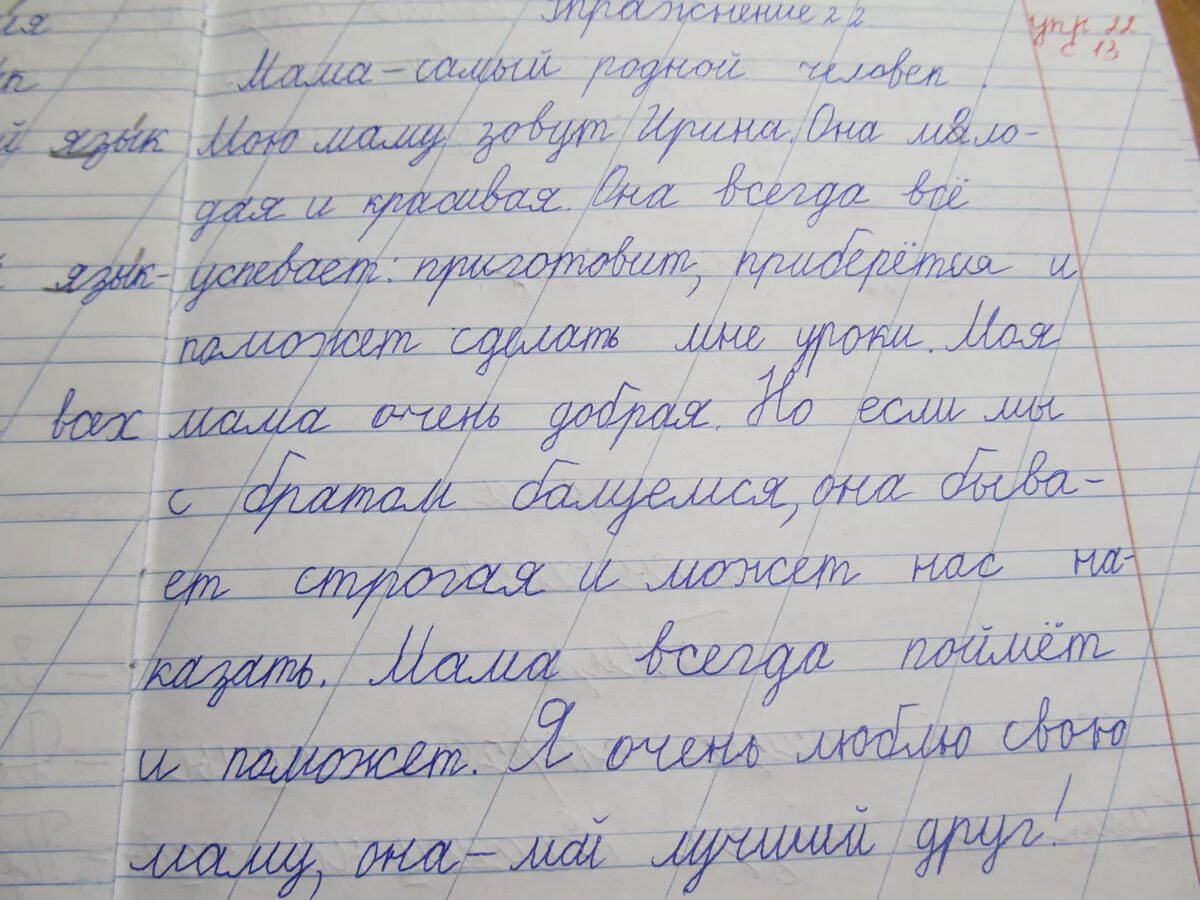 Упражнение 22
упр 22
с 13
Мама - самый родной человек.
язык Мою маму зовут Ирина. Она моло-
дая и красивая. Она всегда всё
язык- успевает: приготовит, приберётся и
поможет сделать мне уроки. Моя
всех мама очень добрая. Но если мы
с братом балуемся, она быва-
ет строгая и может нас на-
казать. Мама всегда поймёт
и поможет. Я очень люблю свою
маму, она - мой лучший друг!